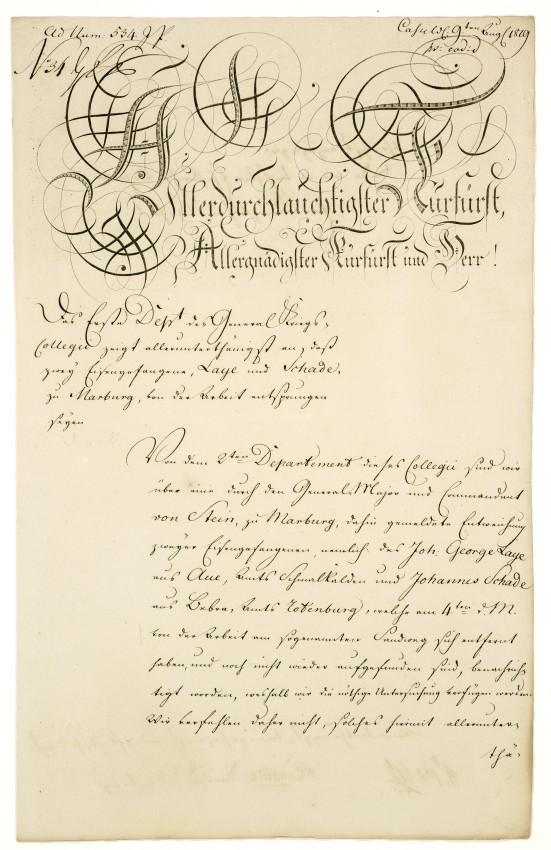 ad Num. 534
Cassel d. 9ten Aug. 1819
pr. eod.
No 31
Allerdurchlauchtigster Kurfürst,
Allergnädigster Kurfürst und Herr!
Das Erste Dept des General Kriegs-
Collegii zeigt allerunterthänigst an, daß
zwey Eisengefangene, Laye und Schade,
zu Marburg, von der Arbeit entsprungen
seyen
Von dem 2ten Departement dieses Collegii sind wir
über eine durch den General-Major und Commandant
von Stein, zu Marburg, dahin gemeldete Entweichung
zweyer Eisengefangenen, nemlich des Joh. George Laye
aus Aue, Amts Schmalkalden und Johannes Schade
aus Bebra, Amts Rotenburg, welche am 4ten d. M.
von der Arbeit am sogenannten Landweg sich entfernt
haben, und noch nicht wieder aufgefunden sind, benachrich-
tigt worden, weshalb wir die nöthige Untersuchung verfügen werden.
Wir verfehlen daher nicht, solches hiermit allerunter-
thä-